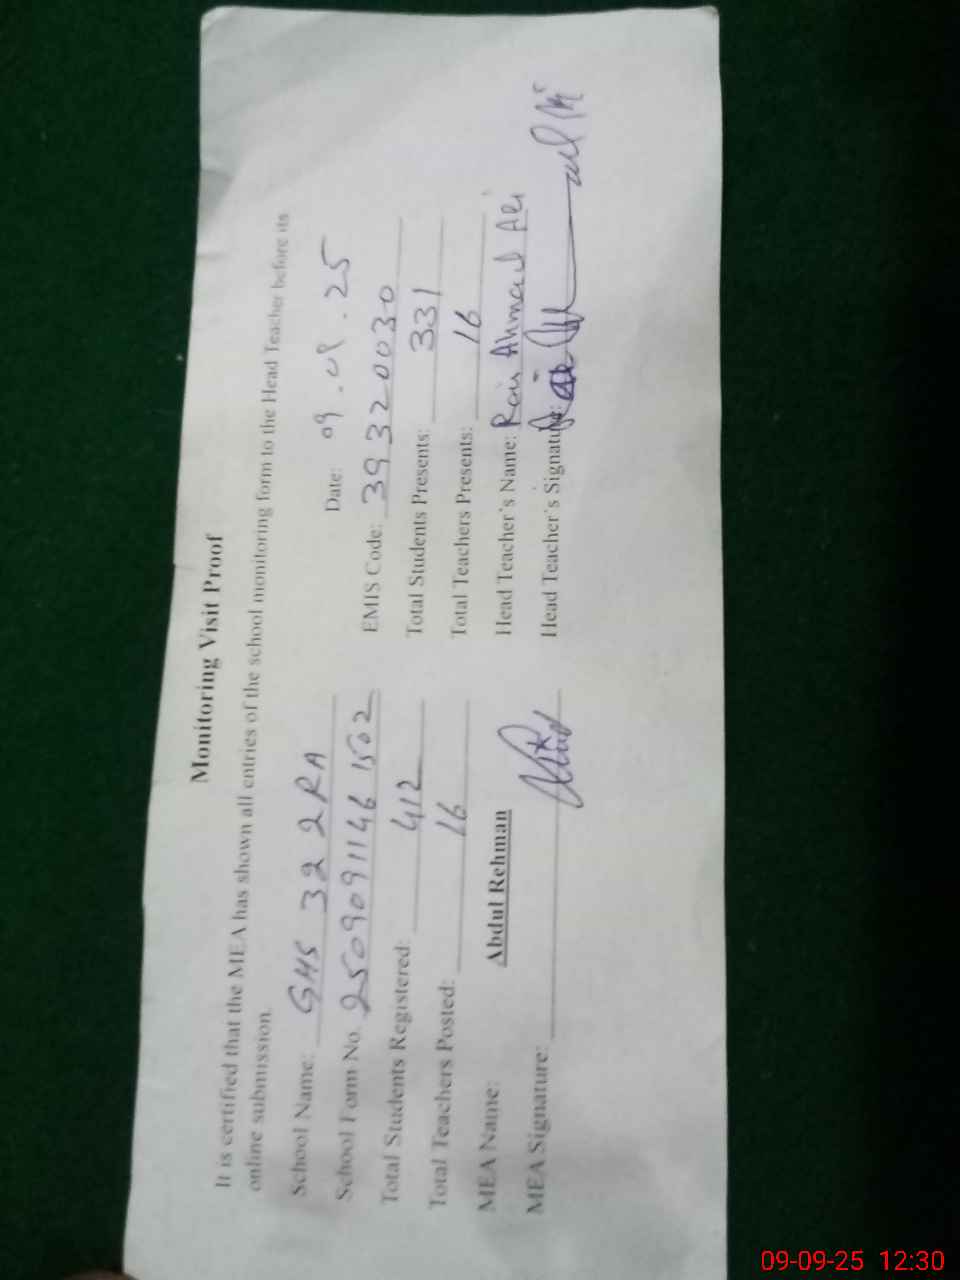 Monitoring Visit Proof
It is certified that the MEA has shown all entries of the school monitoring form to the Head Teacher before its
online submission.
School Name: GHS 32 2RA Date: 09.09.25
School Form No. 25090911461502 EMIS Code: 39320030
Total Students Registered: 412 Total Students Presents: 331
Total Teachers Posted: 16 Total Teachers Presents: 16
MEA Name: Abdul Rehman Head Teacher's Name: Rai Ahmad Ali
MEA Signature: Head Teacher's Signature:
09-09-25 12:30